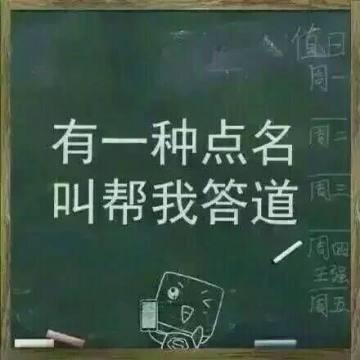 有一种点名
叫帮我答道
值日
周一
周二
周三
周四
王强
周五